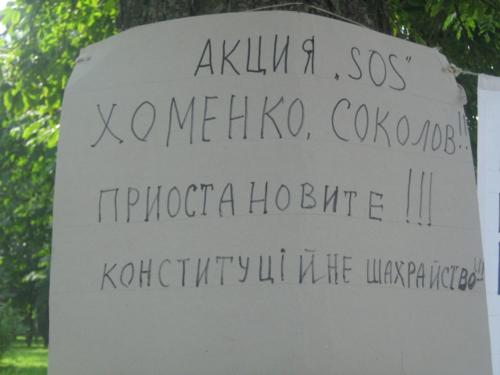 АКЦИЯ „SOS"
ХОМЕНКО, СОКОЛОВ!!
ПРИОСТАНОВИТЕ !!!
КОНСТИТУЦІЙНЕ ШАХРАЙСТВО!!!